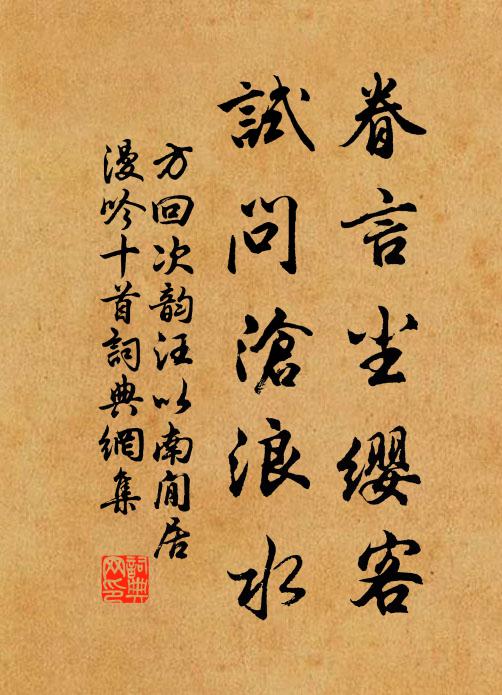 眷言尘缨客
試問滄浪水
方回次韵汪以南闲居
漫吟十首詞典網集
詞典网印